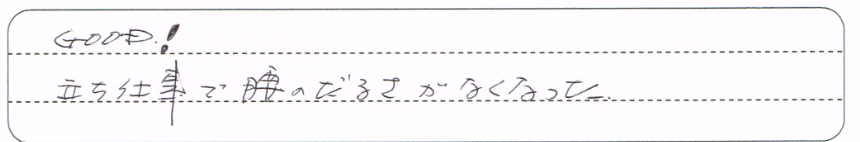 GOOD.!
立ち仕事で腰のだるさがなくなった.